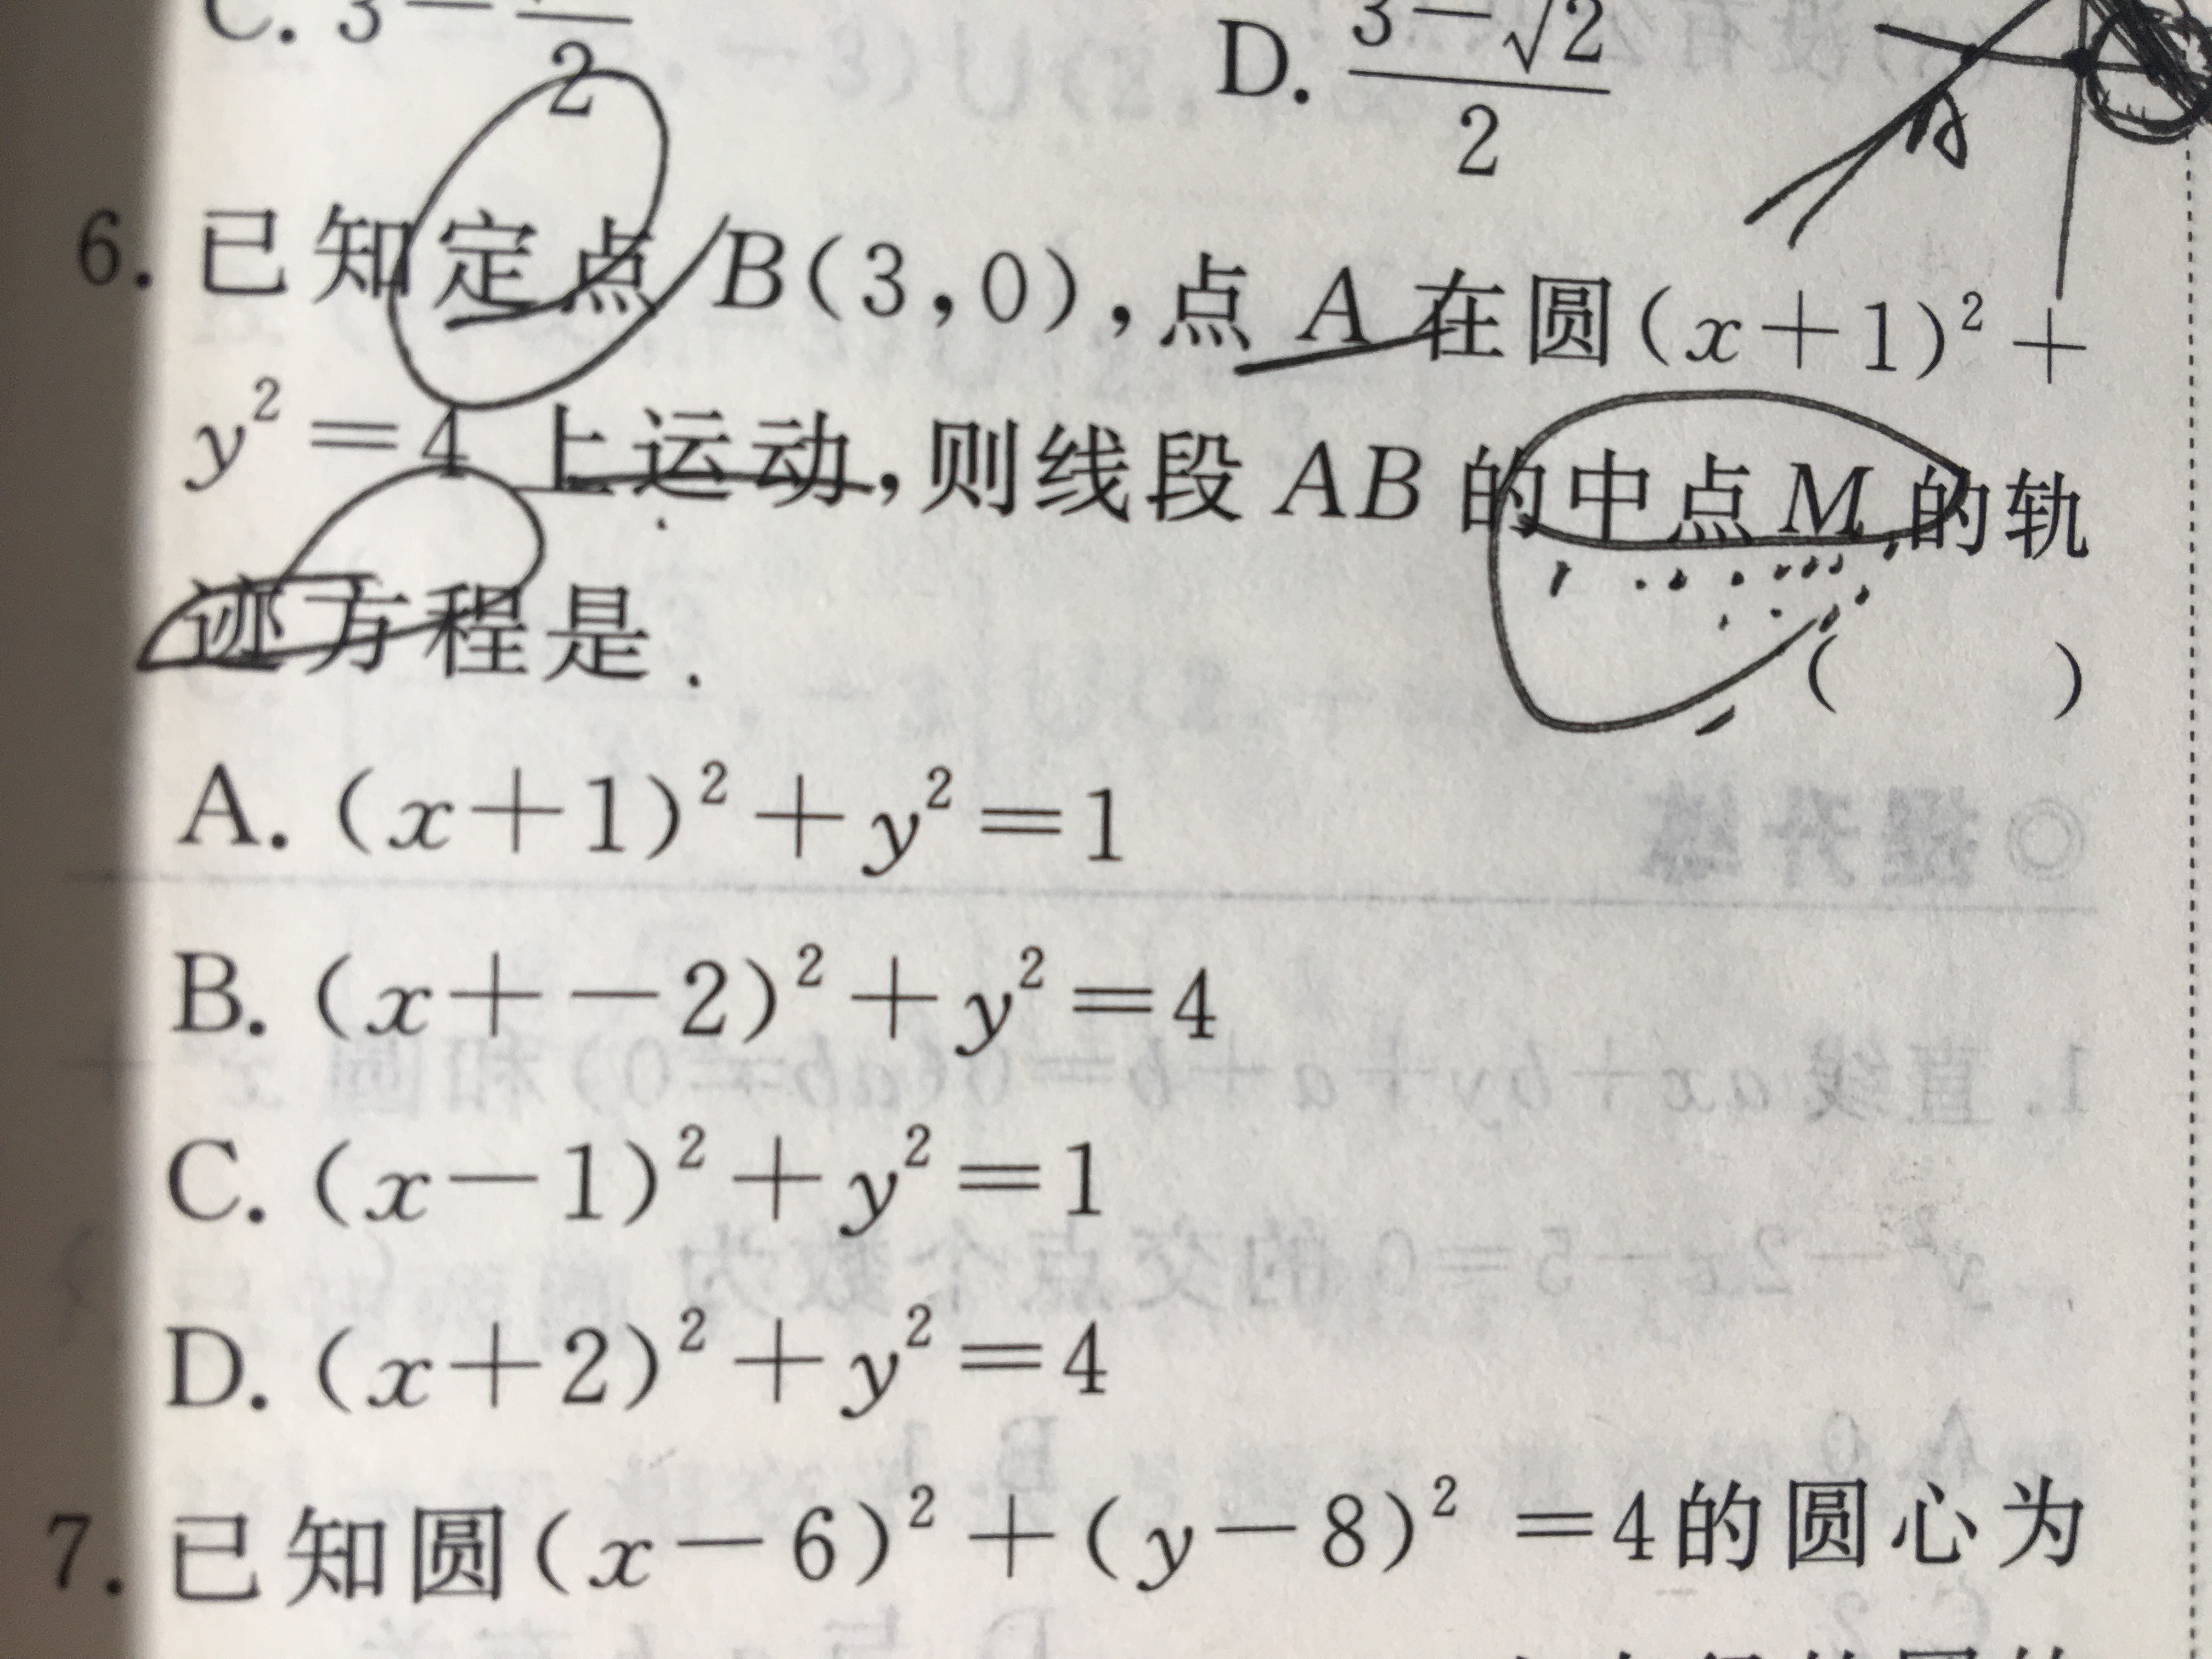 2
D. \frac{3-\sqrt{2}}{2}
6. 已知定点 B(3,0),点 A 在圆(x+1)²+
y²=4 上运动,则线段 AB 的中点 M 的轨
迹方程是. ( )
A. (x+1)²+y²=1
B. (x+-2)²+y²=4
C. (x-1)²+y²=1
D. (x+2)²+y²=4
7. 已知圆(x-6)²+(y-8)² =4的圆心为